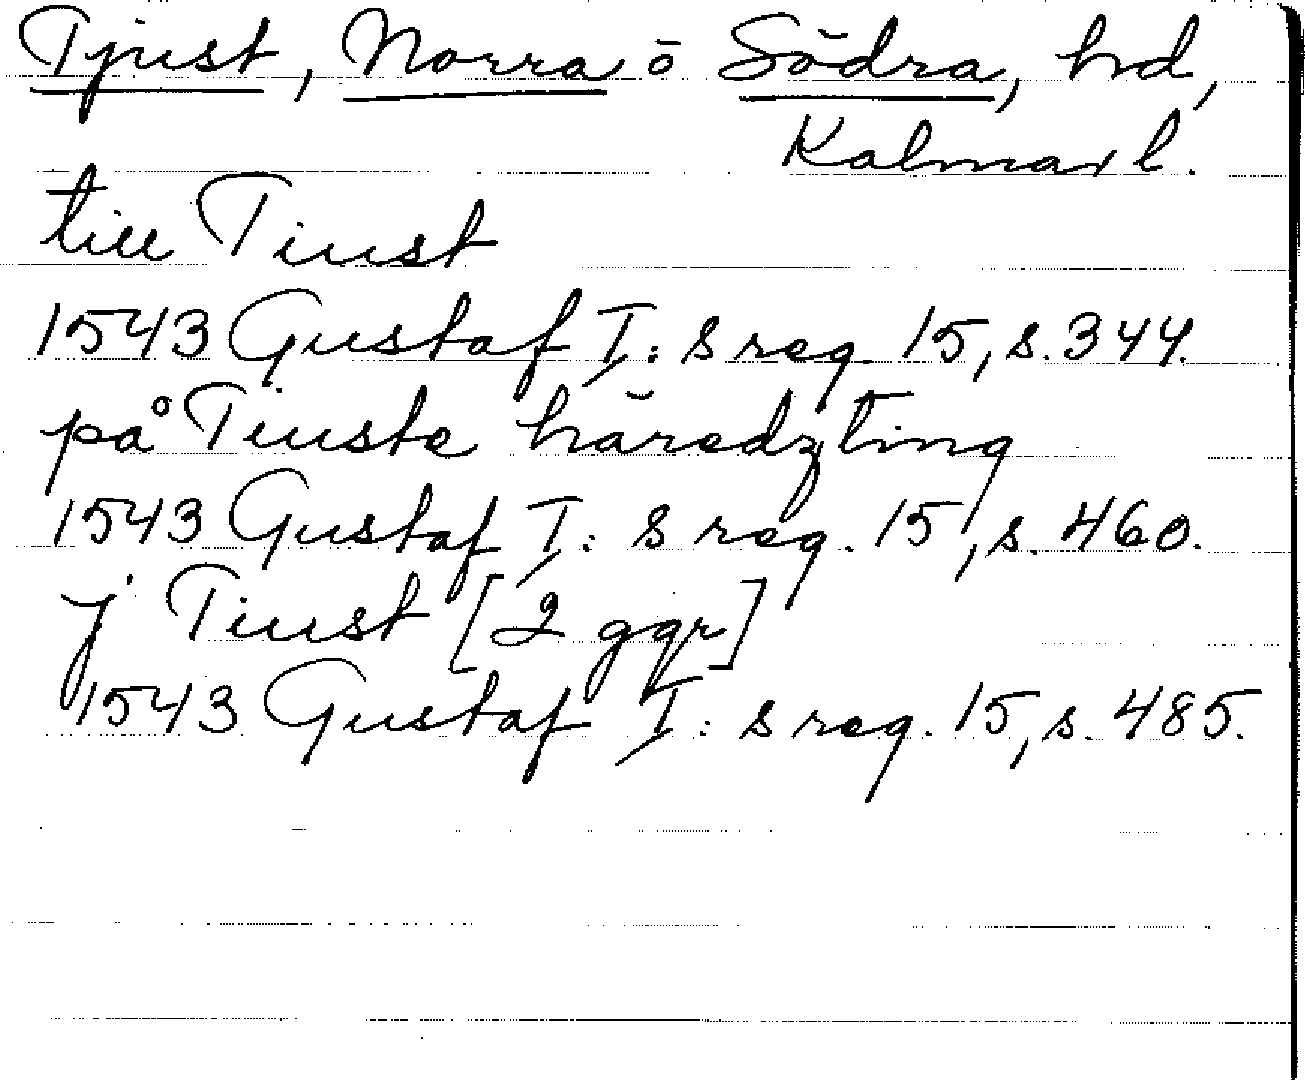 Tjust, Norra ō Södra, hd,
Kalmar l.
till Tiust
1543 Gustaf I:s reg. 15, s. 344.
på Tiuste häredzting
1543 Gustaf I:s reg. 15, s. 460.
j Tiust [2 ggr]
1543 Gustaf I:s reg. 15, s. 485.